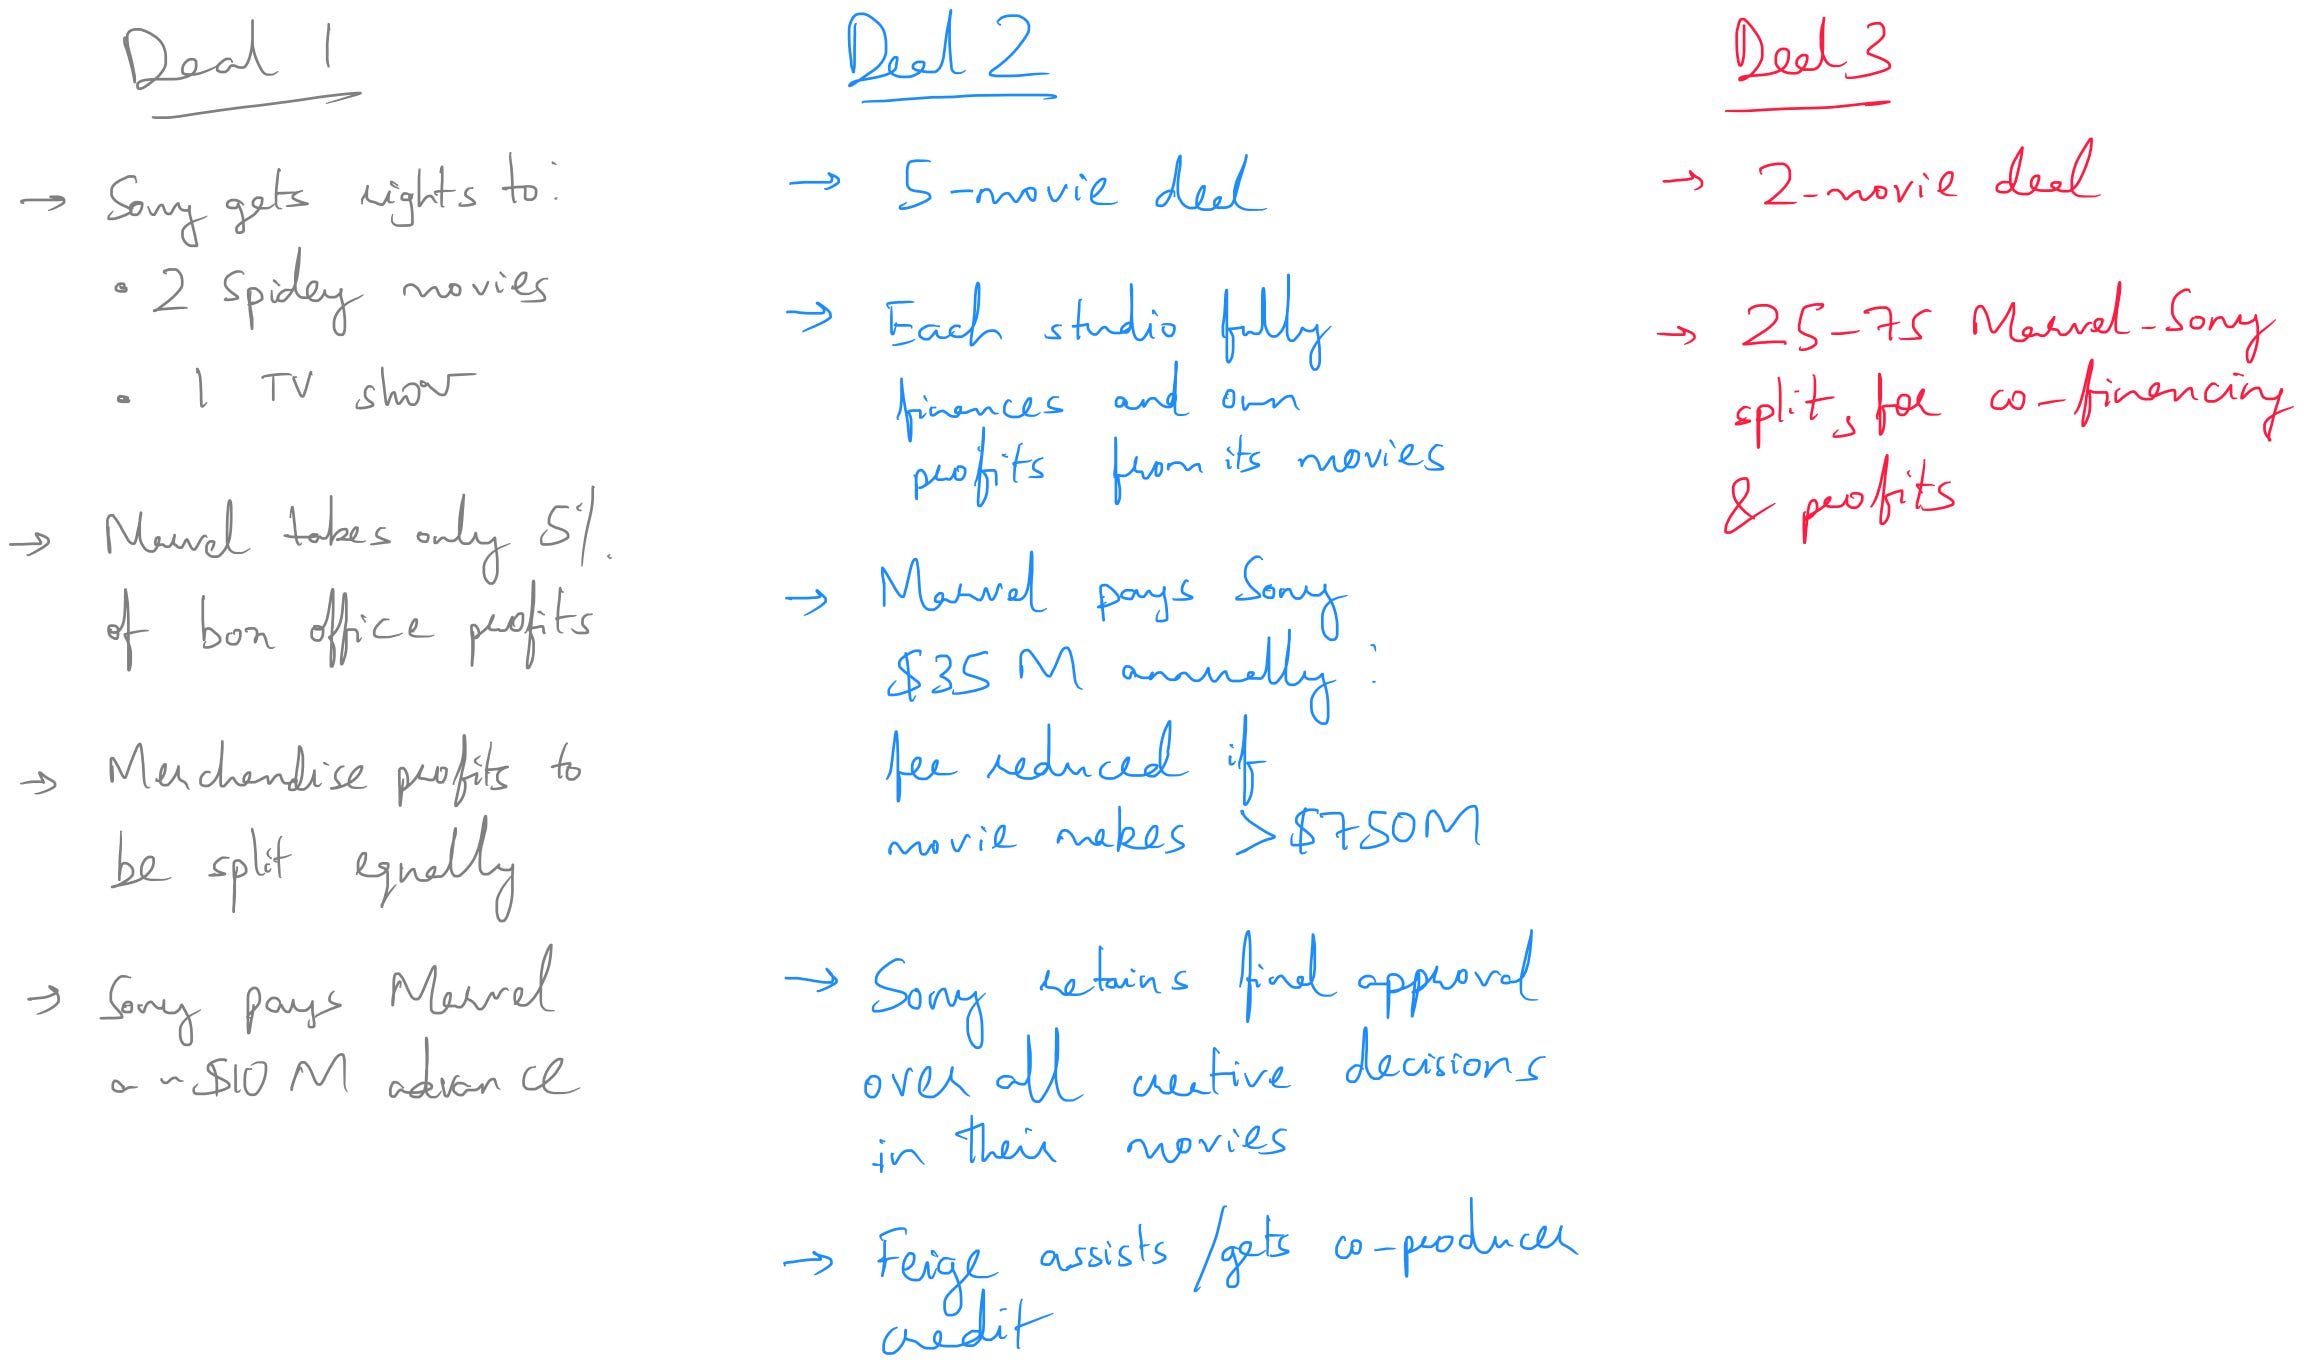 Deal 1
→ Sony gets rights to:
• 2 Spidey movies
• 1 TV show
→ Marvel takes only 5%
of box office profits
→ Merchandise profits to
be split equally
→ Sony pays Marvel
a ~$10 M advance
Deal 2
→ 5-movie deal
→ Each studio fully
finances and own
profits from its movies
→ Marvel pays Sony
$35 M annually:
fee reduced if
movie makes >$750M
→ Sony retains final approval
over all creative decisions
in their movies
→ Feige assists/gets co-producer
credit
Deal 3
→ 2-movie deal
→ 25-75 Marvel-Sony
split, for co-financing
& profits